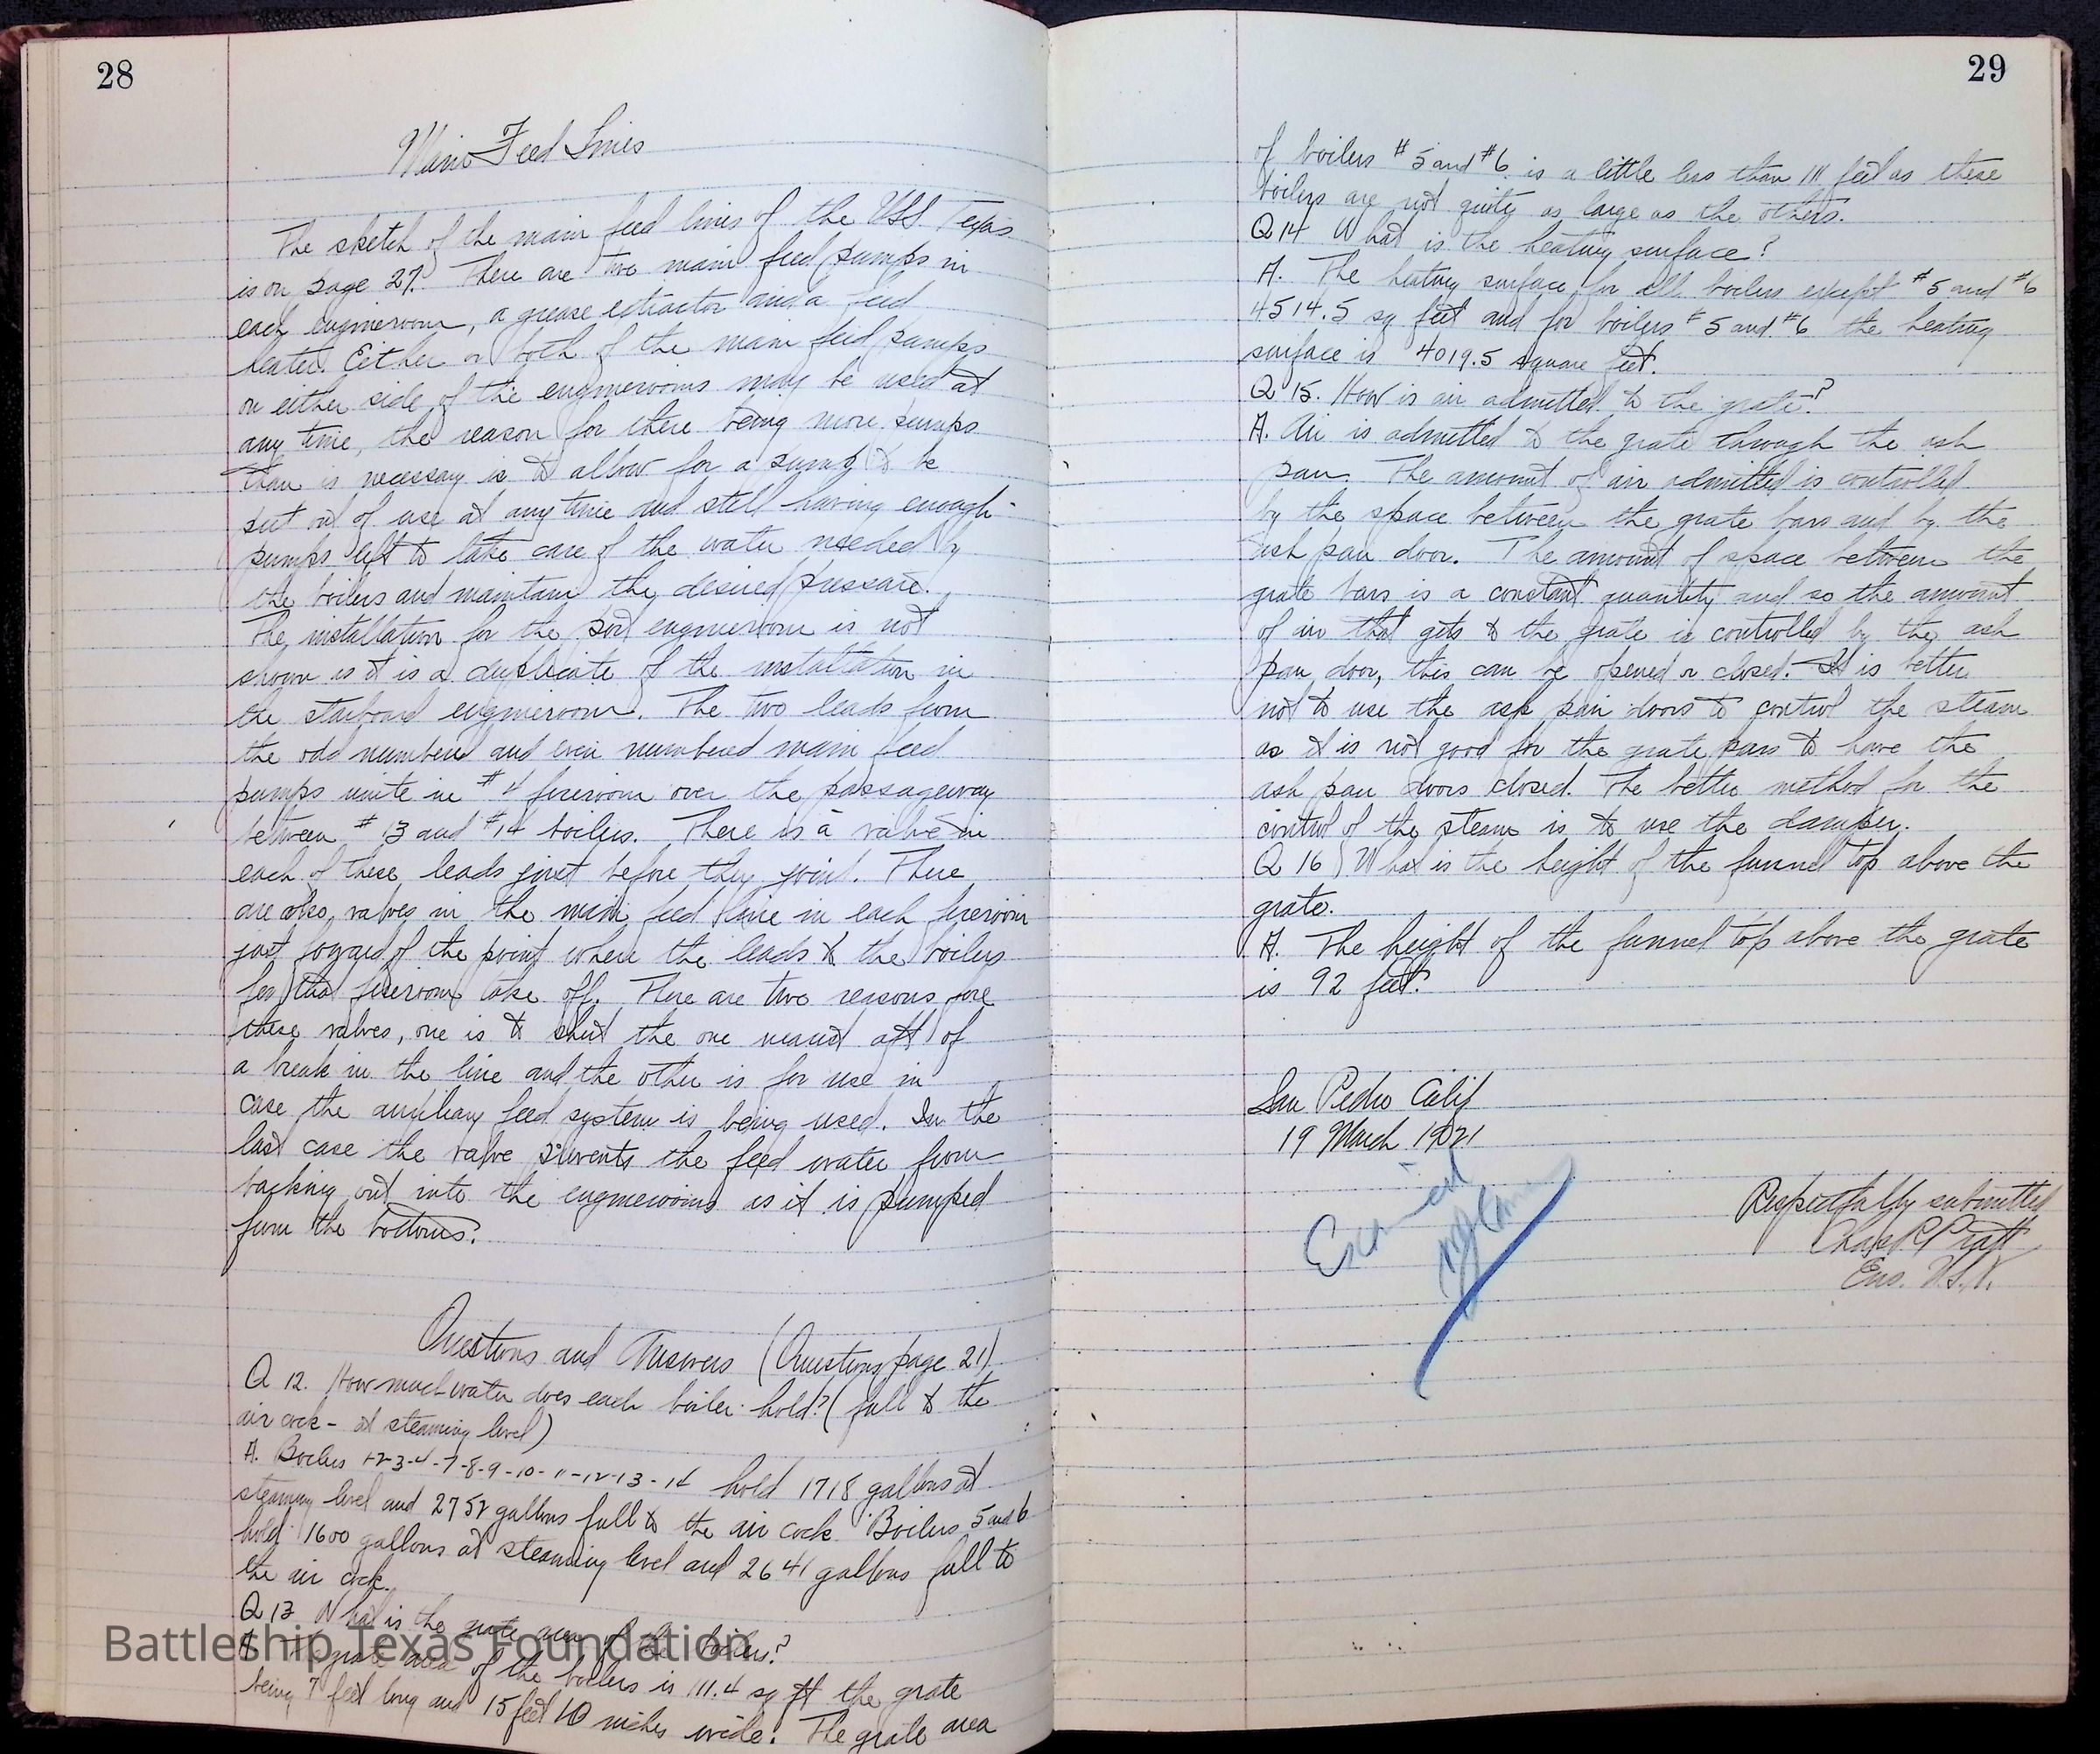 28
Main Feed Lines
The sketch of the main feed lines of the USS Texas
is on page 27. There are two main feed pumps in
each engineroom, a grease extractor and a feed
heater. Either or both of the main feed pumps
on either side of the enginerooms may be used at
any time, the reason for there being more pumps
than is necessary is to allow for a pump to be
put out of use at any time and still having enough
pumps left to take care of the water needed by
the boilers and maintain the desired pressure.
The installation for the port engineroom is not
shown as it is a duplicate of the installation in
the starboard engineroom. The two leads from
the odd numbered and even numbered main feed
pumps unite in #4 fireroom over the passageway
between #13 and #14 boilers. There is a valve in
each of these leads just before they joint. There
are also valves in the main feed line in each fireroom
just forward of the point where the leads to the boilers
for that fireroom take off. There are two reasons fore
these valves, one is to shut the one nearest aft of
a break in the line and the other is for use in
case the auxiliary feed system is being used. In the
last case the valve prevents the feed water from
backing out into the enginerooms as it is pumped
from the bottoms.
Questions and Answers (Questions page 21)
Q 12. How much water does each boiler hold? (full to the
air cock - at steaming level)
A. Boilers 1-2-3-4-7-8-9-10-11-12-13-14 hold 1718 gallons at
steaming level and 2752 gallons full to the air cock. Boilers 5 and 6
hold 1600 gallons at steaming level and 2641 gallons full to
the air cock.
Q 13 What is the grate area of the boilers?
A. The grate area of the boilers is 111.4 sq ft the grate
being 7 feet long and 15 feet 10 inches wide. The grate area
Battleship Texas Foundation
29
of boilers #5 and #6 is a little less than 111 feet as these
boilers are not quite as large as the others.
Q 14 What is the heating surface?
A. The heating surface for all boilers except #5 and #6
4514.5 sq feet and for boilers #5 and #6 the heating
surface is 4019.5 square feet.
Q 15. How is air admitted to the grate?
A. Air is admitted to the grate through the ash
pan. The amount of air admitted is controlled
by the space between the grate bars and by the
ash pan door. The amount of space between the
grate bars is a constant quantity and so the amount
of air that gets to the grate is controlled by the ash
pan door, this can be opened or closed. It is better
not to use the ash pan doors to control the steam
as it is not good for the grate bars to have the
ash pan doors closed. The better method for the
control of the steam is to use the damper.
Q 16 What is the height of the funnel top above the
grate.
A. The height of the funnel top above the grate
is 92 feet.
San Pedro Calif
19 March 1921
Examined
Respectfully submitted
Chas R Pratt
Ens. U.S.N.